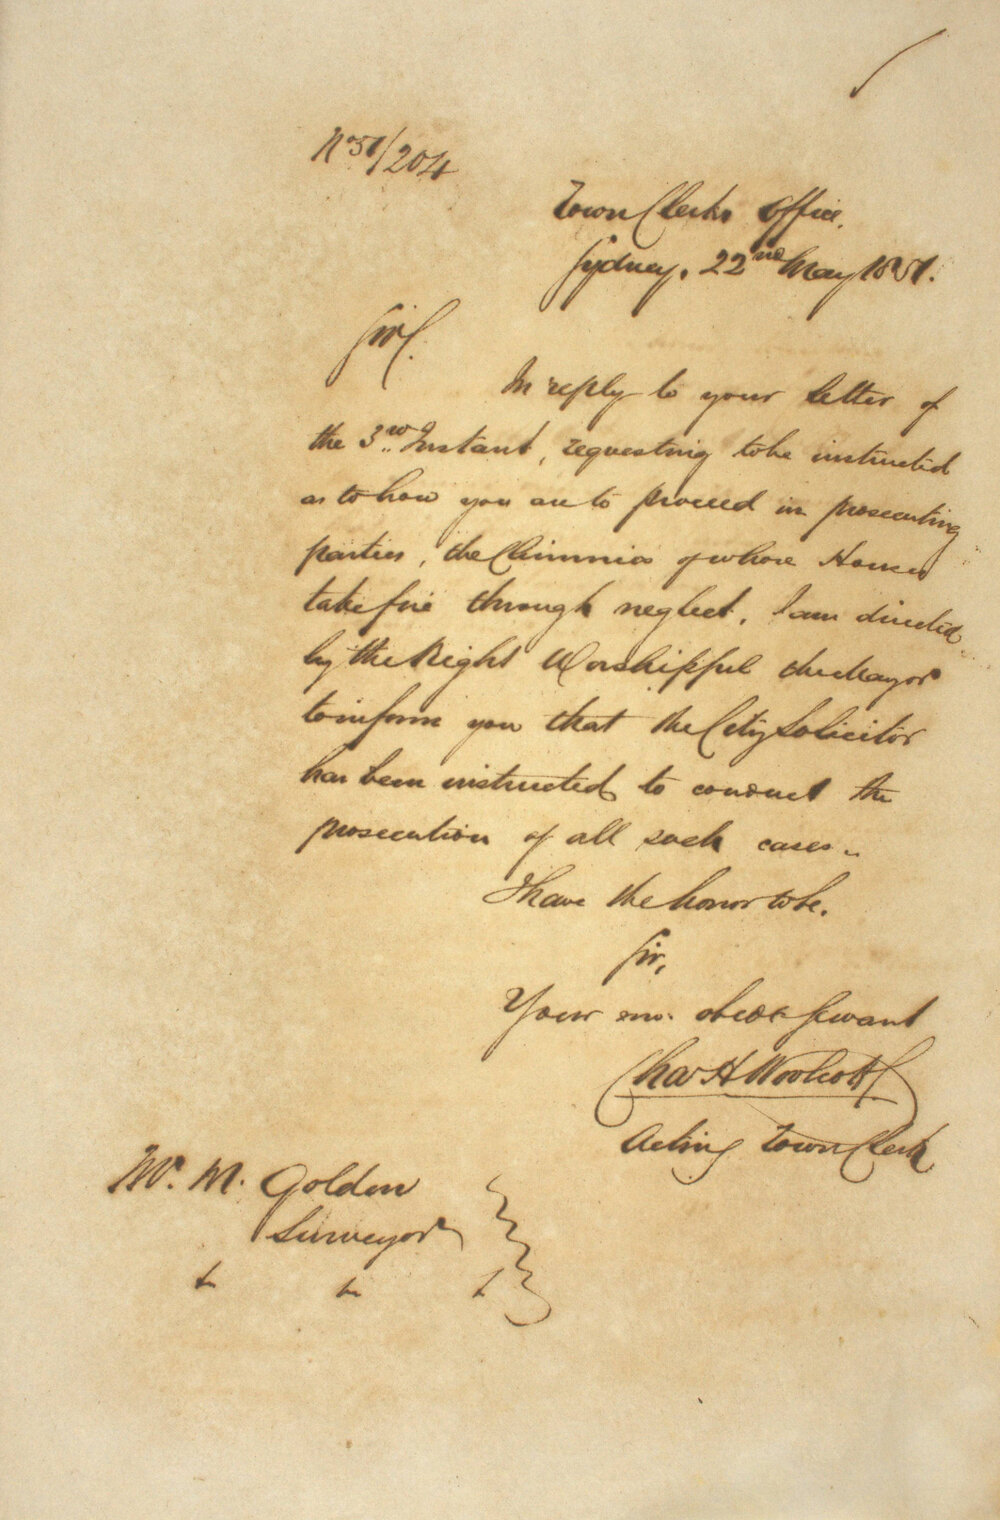 No 51/204
Town Clerks Office.
Sydney, 22nd May 1851.
Sir,
In reply to your letter of
the 3rd Instant, requesting to be instructed
as to how you are to proceed in prosecuting
parties, the Chimnies of whose Houses
take fire through neglect, I am directed
by the Right Worshipful the Mayor
to inform you that the City Solicitor
has been instructed to conduct the
prosecution of all such cases.
I have the honor to be.
Sir,
Your mo. obedt Servant
Chas H Woolcott
Acting Town Clerk
Mr. M. Golden
Surveyor